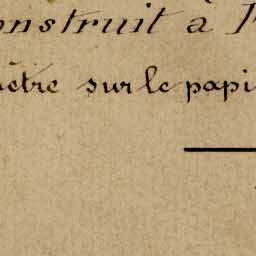 onstruit à
être sur le papi